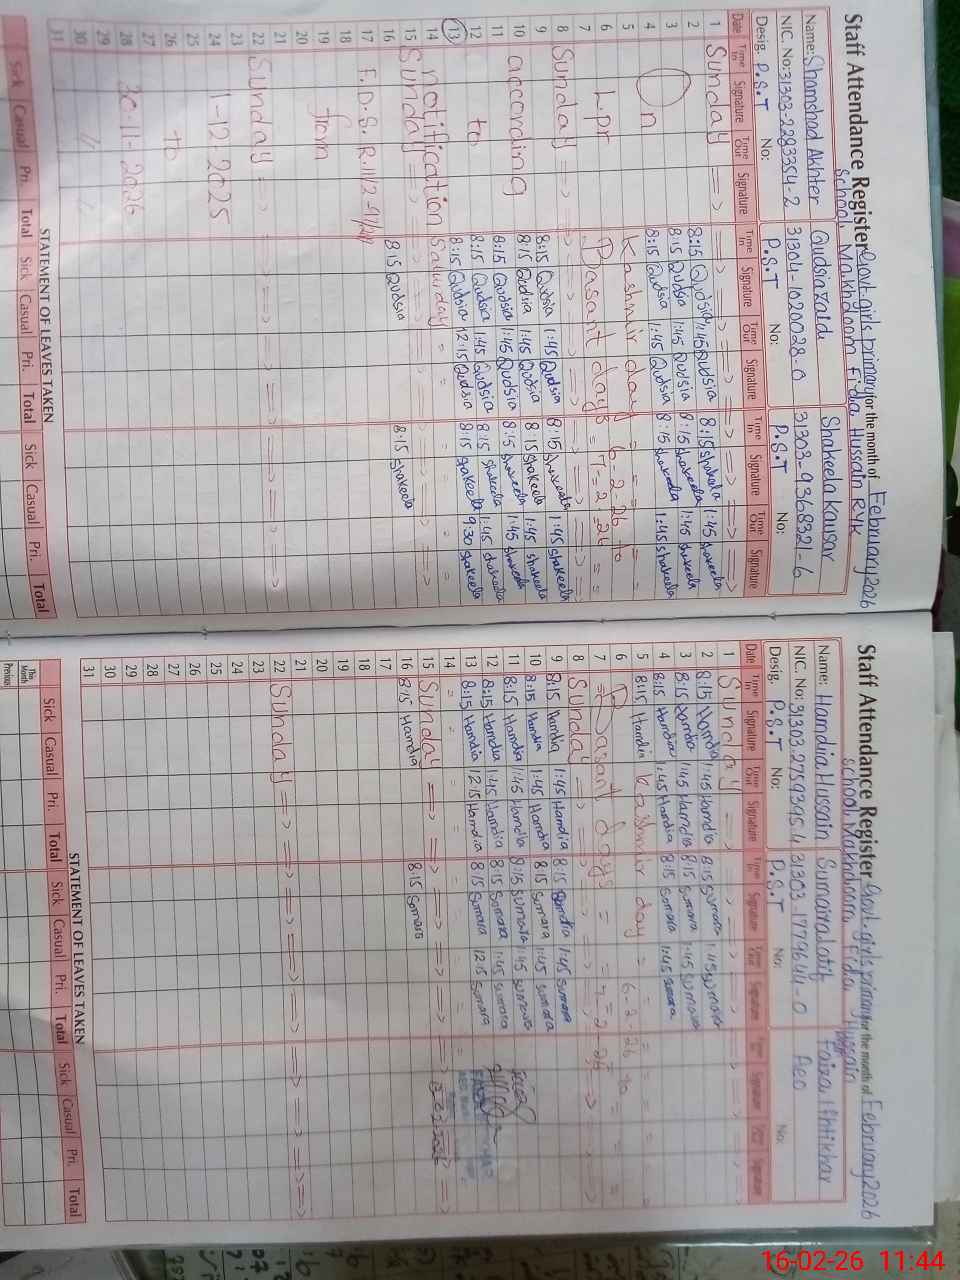 Staff Attendance Register Govt. girls primary for the month of February 2026
school Makhdoom Fida Hussain RYK
Name: Shamshad Akhter Qudsia Zaidi Shakeela Kausar
NIC. No: 31303-2283354-2 31304-1020028-0 31303-9368321-6
Desig. P.S.T No: P.S.T No: P.S.T No:
Date Time In Signature Time Out Signature Time In Signature Time Out Signature Time In Signature Time Out Signature
1 Sunday
2 8:15 Qudsia 1:45 Qudsia 8:15 Shakeela 1:45 Shakeela
3 8:15 Qudsia 1:45 Qudsia 8:15 Shakeela 1:45 Shakeela
4 On 8:15 Qudsia 1:45 Qudsia 8:15 Shakeela 1:45 Shakeela
5 Kashmir day
6 L.pr Basant days = 6-2-26 to
7 = 7-2-26
8 Sunday
9 8:15 Qudsia 1:45 Qudsia 8:15 Shakeela 1:45 Shakeela
10 according 8:15 Qudsia 1:45 Qudsia 8:15 Shakeela 1:45 Shakeela
11 8:15 Qudsia 1:45 Qudsia 8:15 Shakeela 1:45 Shakeela
12 to 8:15 Qudsia 1:45 Qudsia 8:15 Shakeela 1:45 Shakeela
13 8:15 Qudsia 12:15 Qudsia 8:15 Shakeela 9:30 Shakeela
14 notification Saturday
15 Sunday
16 8:15 Qudsia 8:15 Shakeela
17 F.D.S.R.11/2
18
19 from
20
21
22 Sunday
23
24 1-12-2025
25
26 to
27
28 30-11-2026
29
30
31
STATEMENT OF LEAVES TAKEN
Sick Casual Pri. Total Sick Casual Pri. Total Sick Casual Pri. Total
Staff Attendance Register Govt. girls primary for the month of February 2026
school Makhdoom Fida Hussain
Name: Hamdia Hussain Sumaira Latif Faiza Iftikhar
NIC. No: 31303-2759395-4 31303-1779644-0 Aeo
Desig. P.S.T No: P.S.T No: No:
Date Time In Signature Time Out Signature Time In Signature Time Out Signature Time In Signature Time Out Signature
1 Sunday
2 8:15 Hamdia 1:45 Hamdia 8:15 Sumara 1:45 Sumara
3 8:15 Hamdia 1:45 Hamdia 8:15 Sumara 1:45 Sumara
4 8:15 Hamdia 1:45 Hamdia 8:15 Sumara 1:45 Sumara
5 8:15 Hamdia Kashmir day
6 Basant days = 6-2-26 to
7 = 7-2-26
8 Sunday
9 8:15 Hamdia 1:45 Hamdia 8:15 1:45 Sumara
10 8:15 Hamdia 1:45 Hamdia 8:15 Sumara 1:45 Sumara
11 8:15 Hamdia 1:45 Hamdia 8:15 Sumara 1:45 Sumara
12 8:15 Hamdia 1:45 Hamdia 8:15 Sumara 1:45 Sumara
13 8:15 Hamdia 12:15 Hamdia 8:15 Sumara 12:15 Sumara
14
15 Sunday
16 8:15 Hamdia 8:15 Sumara
17
18
19
20
21
22 Sunday
23
24
25
26
27
28
29
30
31
STATEMENT OF LEAVES TAKEN
Sick Casual Pri. Total Sick Casual Pri. Total Sick Casual Pri. Total
This Month
Previous
16-02-26 11:44